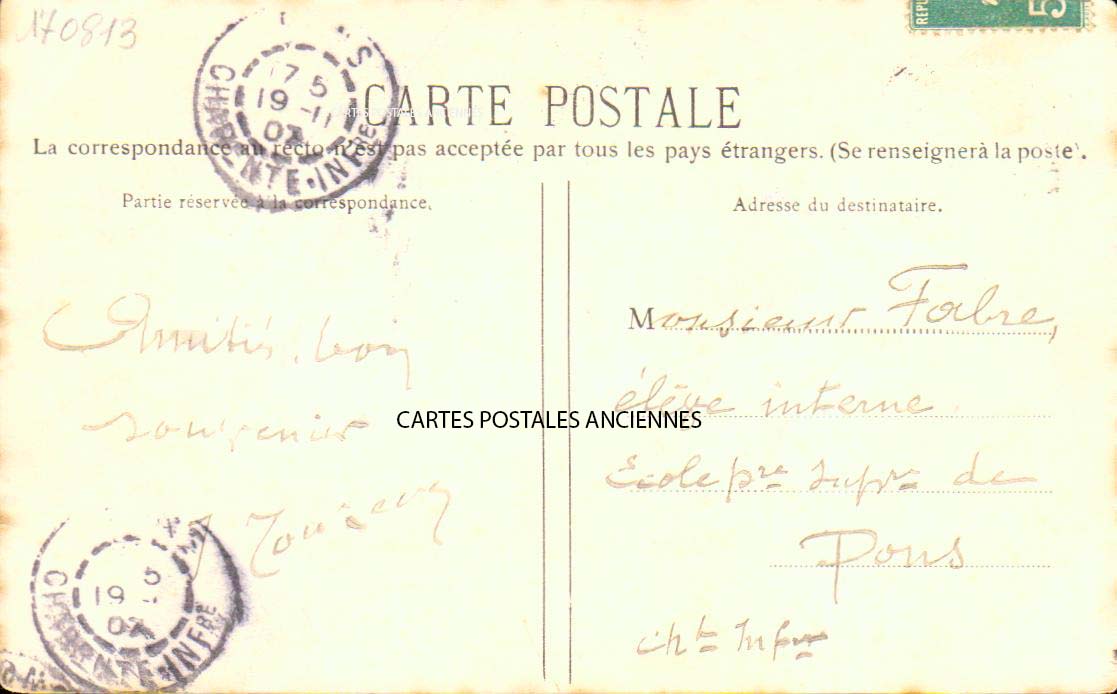 170813
REPU
5
S
17 5
19 -11
07
CHARENTE-INFRE
CARTE POSTALE
CARTES POSTALES ANCIENNES
La correspondance au recto n'est pas acceptée par tous les pays étrangers. (Se renseigner à la poste).
Partie réservée à la correspondance.
Adresse du destinataire.
Amitiés, bon
souvenir
Monsieur Fabre,
élève interne
Ecole pre Supre de
Pons
Chte Infre
CARTES POSTALES ANCIENNES
5
19
07
CHARENTE-INFRE